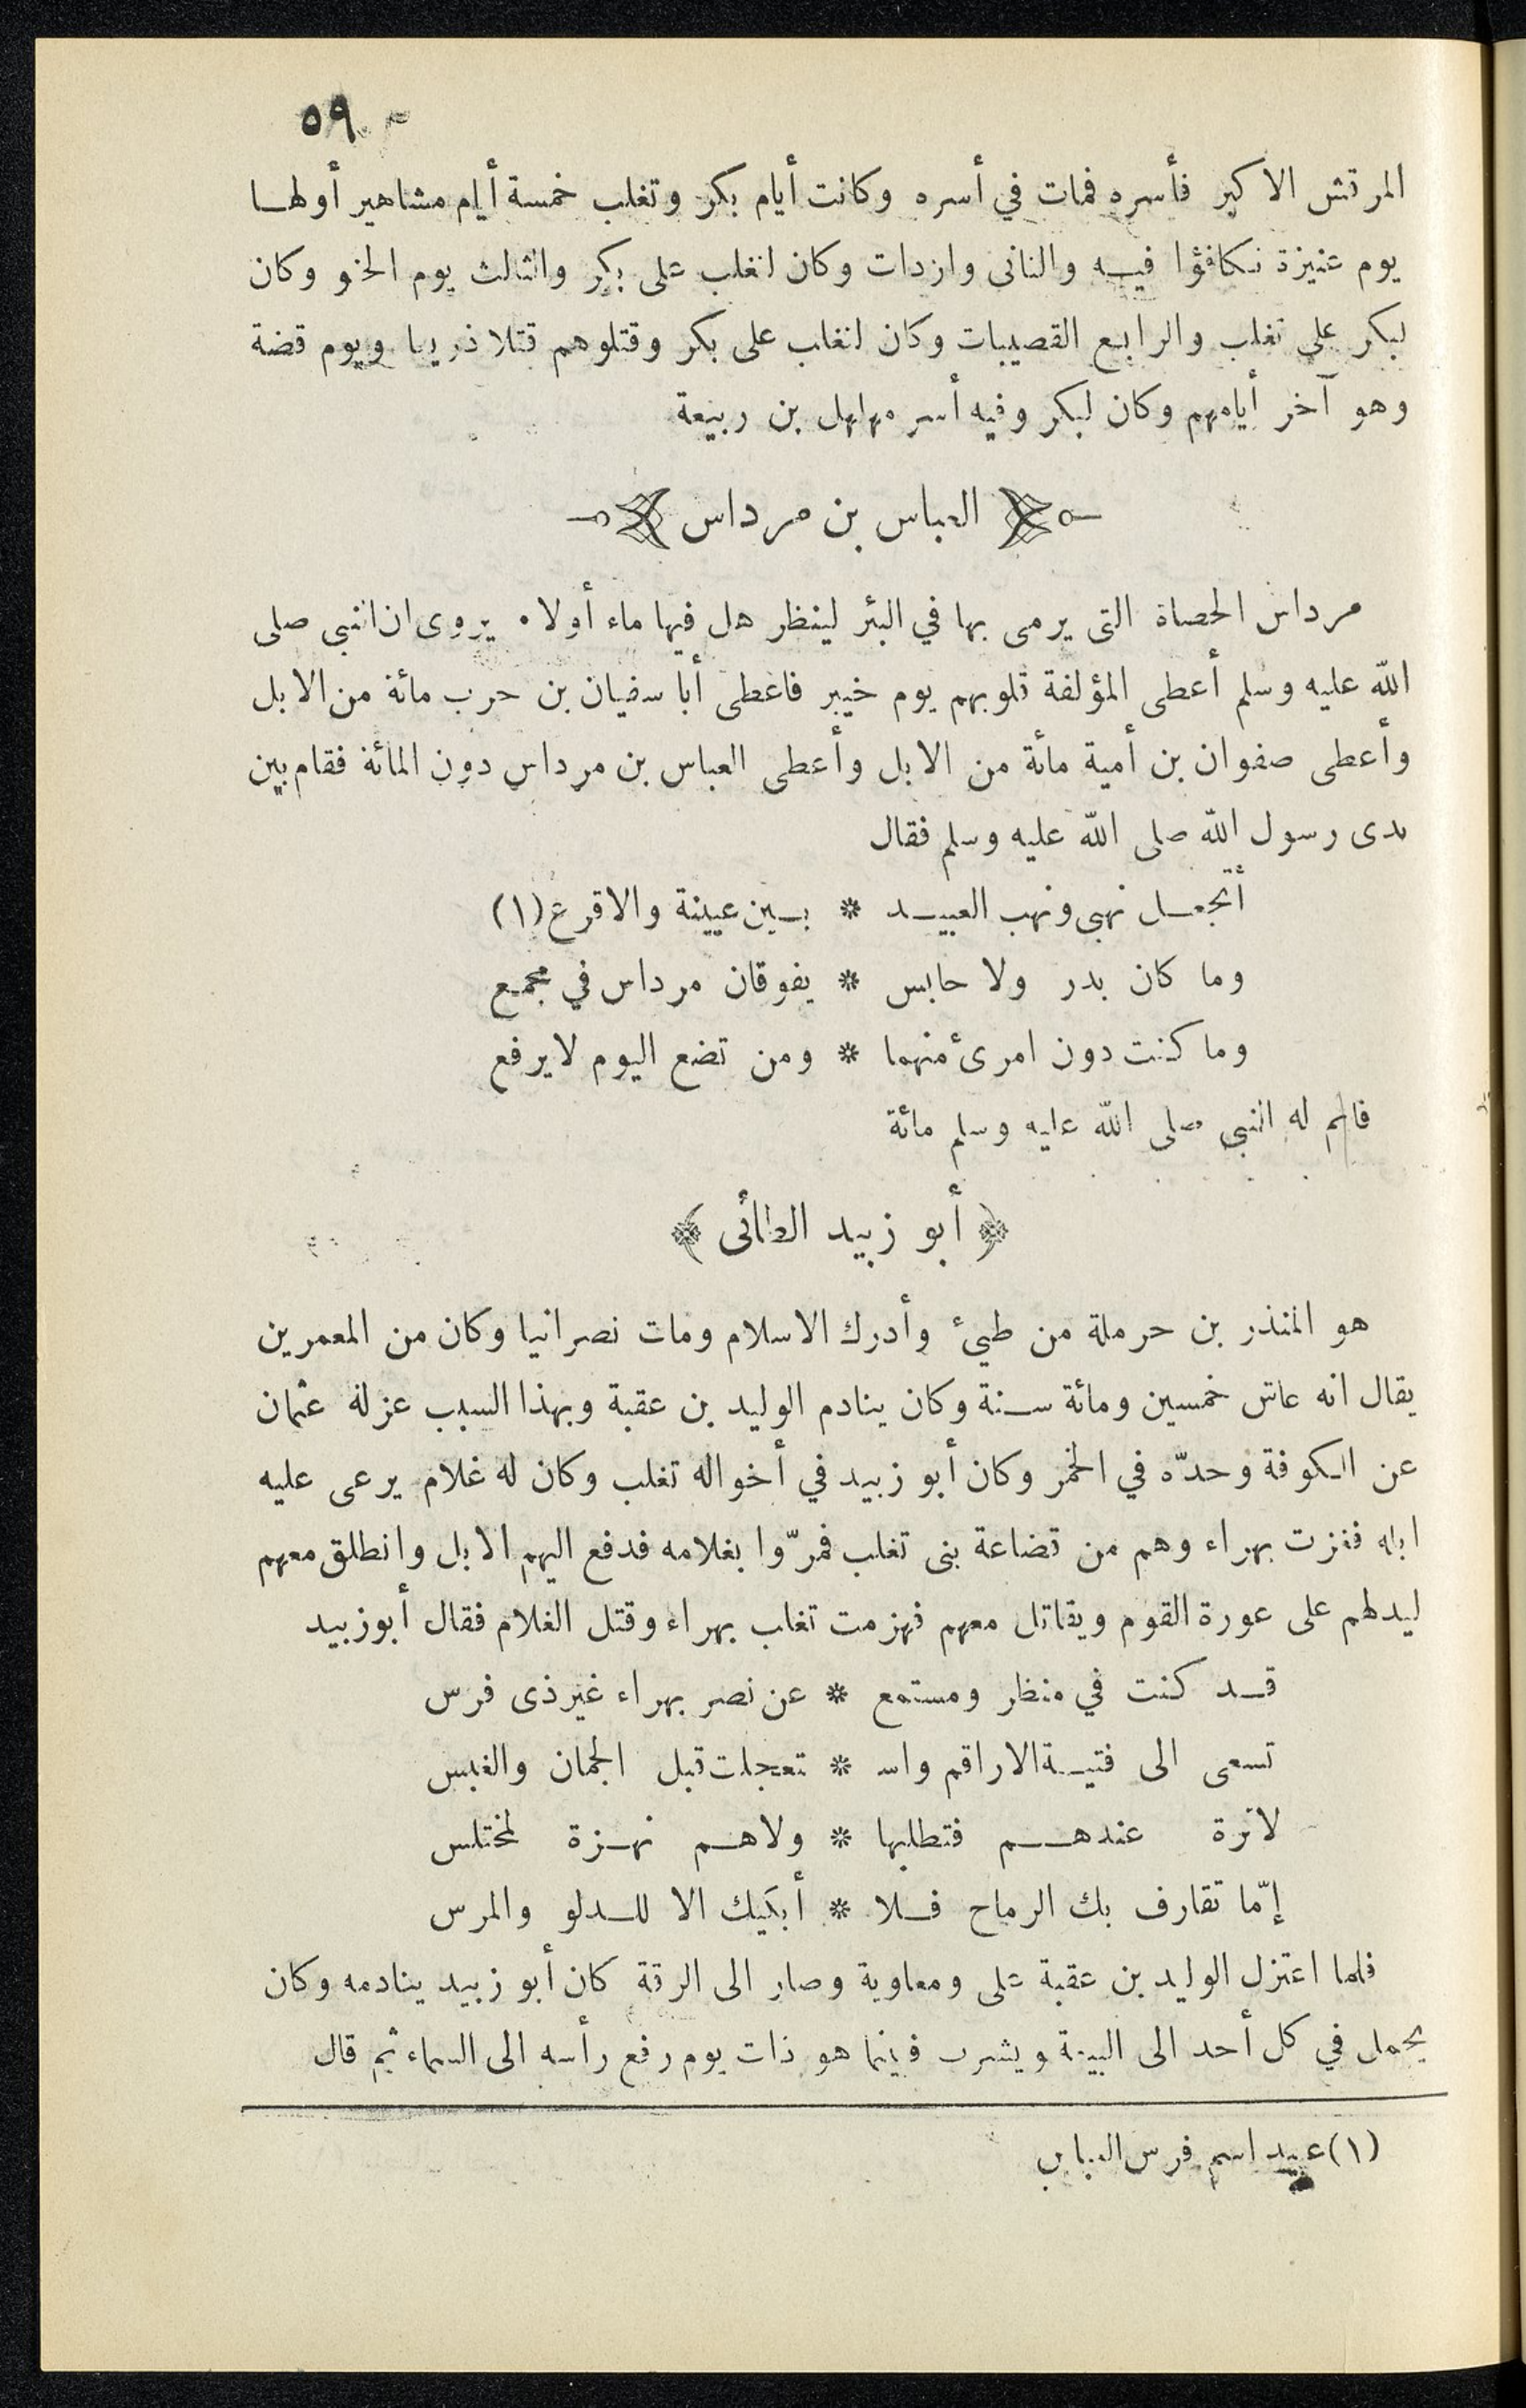 ٥٩
المرقش الاكبر فأسره فمات في أسره وكانت أيام بكر وتغلب خمسة أيام مشاهير أولها
يوم عنيزة تكافؤا فيه والثانى واردات وكان لتغلب على بكر والثالث يوم الحنو وكان
لبكر على تغلب والرابع القصيبات وكان لتغلب على بكر وقتلوهم قتلا ذريعا ويوم قضة
وهو آخر أيامهم وكان لبكر وفيه أسر مهلهل بن ربيعة
العباس بن مرداس
مرداس الحصاة التى يرمى بها في البئر لينظر هل فيها ماء أولا ٠ يروى ان النبى صلى
الله عليه وسلم أعطى المؤلفة قلوبهم يوم خيبر فاعطى أبا سفيان بن حرب مائة من الابل
وأعطى صفوان بن أمية مائة من الابل وأعطى العباس بن مرداس دون المائة فقام بين
يدى رسول الله صلى الله عليه وسلم فقال
أتجعل نهبى ونهب العبيد * بين عيينة والاقرع (١)
وما كان بدر ولا حابس * يفوقان مرداس في مجمع
وما كنت دون امرئ منهما * ومن تضع اليوم لا يرفع
فاتم له النبى صلى الله عليه وسلم مائة
﴿ أبو زبيد الطائى ﴾
هو المنذر بن حرملة من طيئ وأدرك الاسلام ومات نصرانيا وكان من المعمرين
يقال انه عاش خمسين ومائة سنة وكان ينادم الوليد بن عقبة وبهذا السبب عزله عثمان
عن الكوفة وحدّه في الخمر وكان أبو زبيد في أخواله تغلب وكان له غلام يرعى عليه
ابله فغزت بهراء وهم من قضاعة بنى تغلب فمرّوا بغلامه فدفع اليهم الابل وانطلق معهم
ليدلهم على عورة القوم ويقاتل معهم فهزمت تغلب بهراء وقتل الغلام فقال أبوزبيد
قد كنت في منظر ومستمع * عن نصر بهراء غير ذى فرس
تسعى الى فتية الاراقم واسـ * تعجلت قبل الجمان والغبس
لا ترة عندهم فتطلبها * ولا هم نهزة لمختلس
إمّا تقارف بك الرماح فلا * أبكيك الا للدلو والمرس
فلما اعتزل الوليد بن عقبة على ومعاوية وصار الى الرقة كان أبو زبيد ينادمه وكان
يحمل في كل أحد الى البيعة ويشرب فبينما هو ذات يوم رفع رأسه الى السماء ثم قال
(١) عبيد اسم فرس العباس